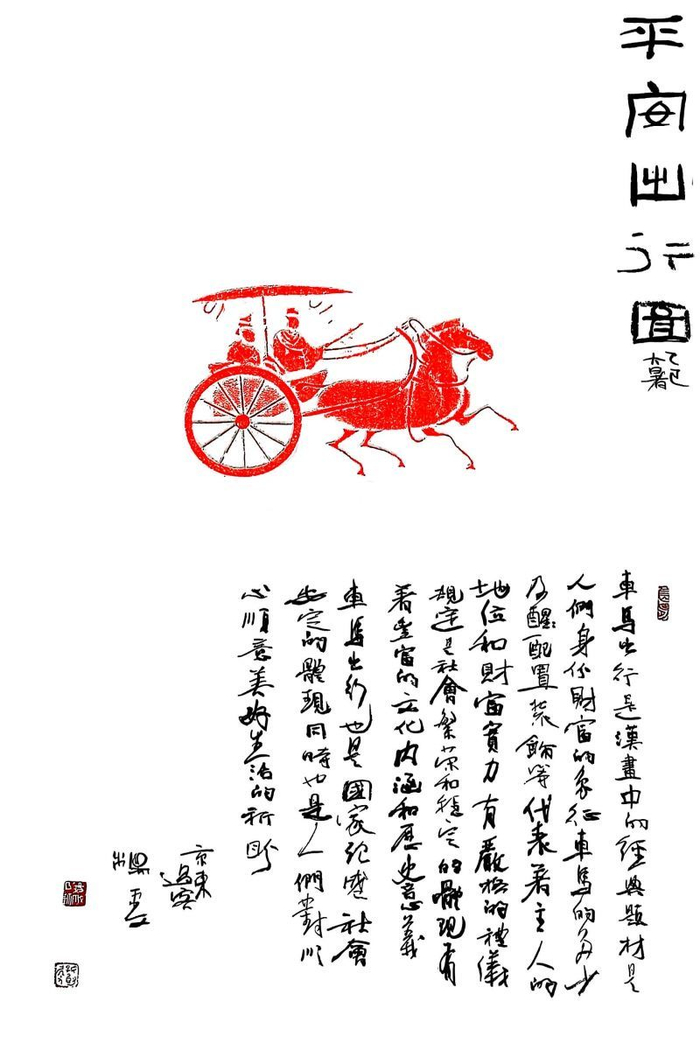 平安出行圖
車馬出行是漢畫中的經典題材是
人們身份財富的象征車馬的多少
及配置裝飾等代表着主人的
地位和財富實力有嚴格的禮儀
規定是社會繁榮和穩定的體現有
着豐富的文化內涵和歷史意義
車馬出行也是國家記 社會
安定的體現同時也是人們對順
心順意美好生活的祈盼
京東
過客